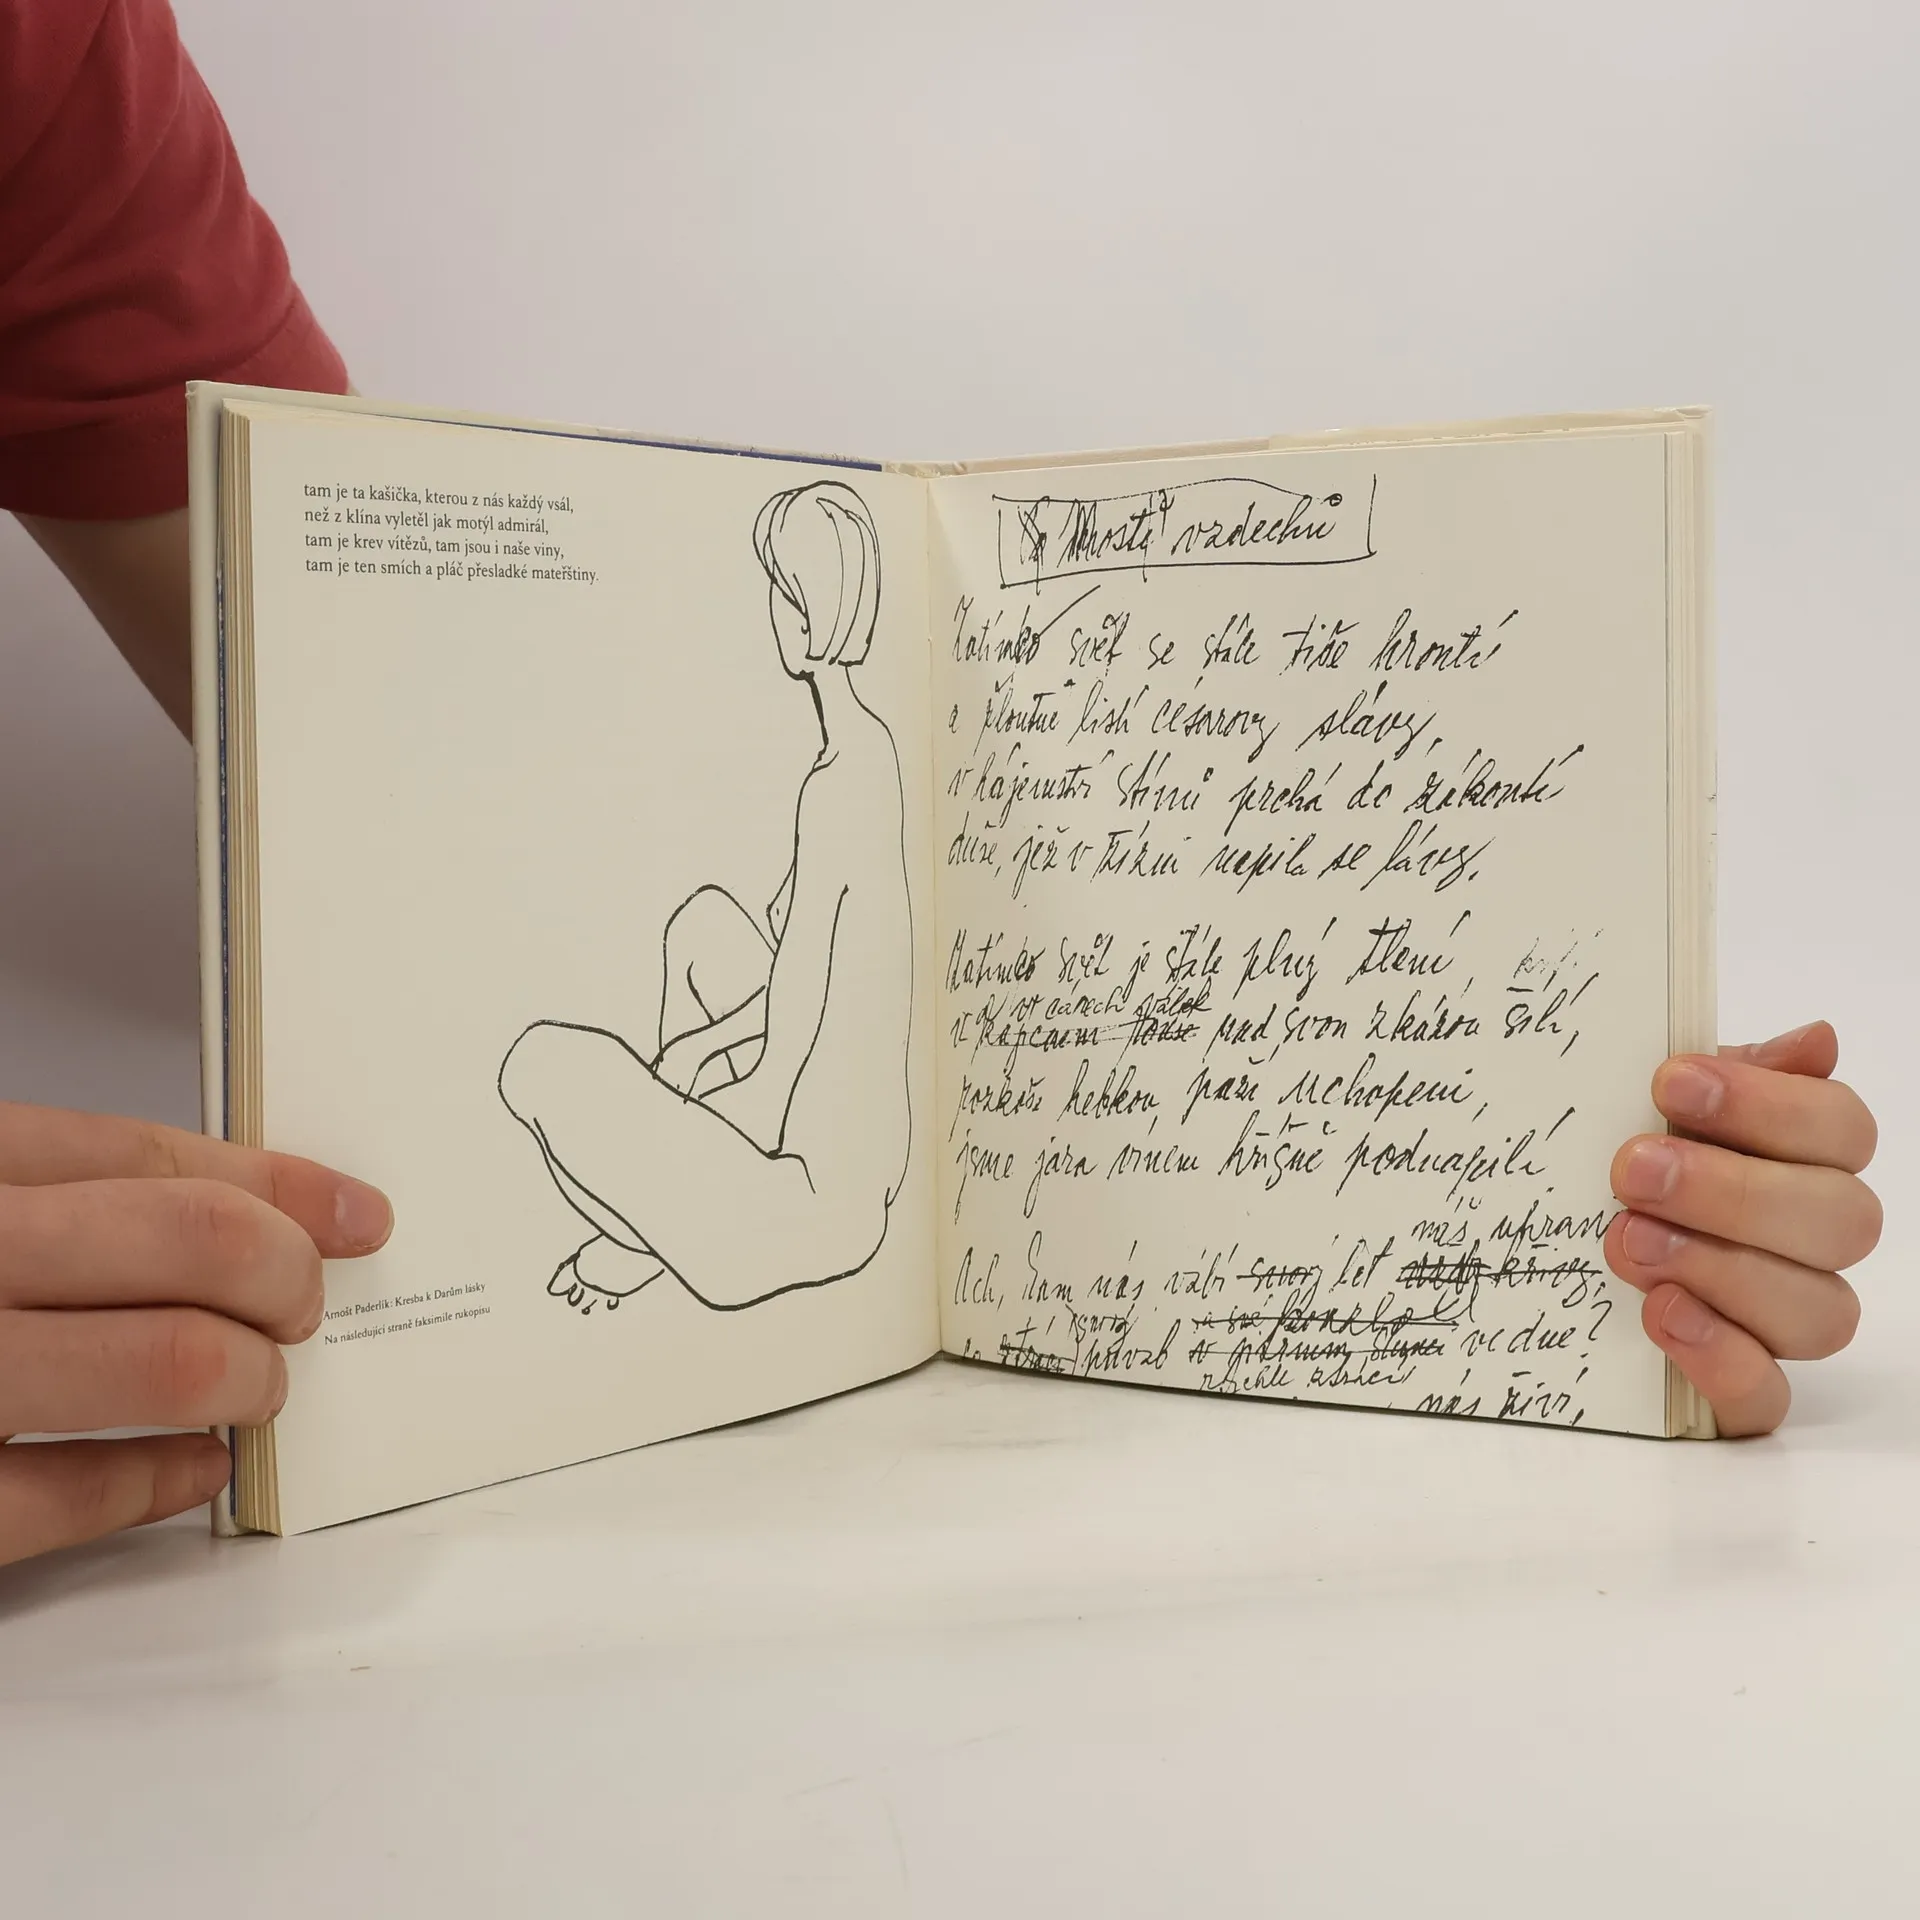 tam je ta kašička, kterou z nás každý vsál,
než z klína vyletěl jak motýl admirál,
tam je krev vítězů, tam jsou i naše viny,
tam je ten smích a pláč přesladké mateřštiny.
Arnošt Paderlík: Kresba k Darům lásky
Na následující straně faksimile rukopisu
vzdechů
Zatímco svět se stále tiše hroutí
a žloutne listí césarovy slávy,
v hájemství stínů prchá do zákoutí
duše, jež v žízni napila se lávy.
Zatímco svět je stále plný tlení,
válek
v nad svou zkázou šílí,
rozkoší hebkou paží uchopeni,
jsme jara vínem hříšně podnapilí
náš
Ach, kam nás vábí let
snový
půvab ve dne?
rychle ztrácí
nás živí,